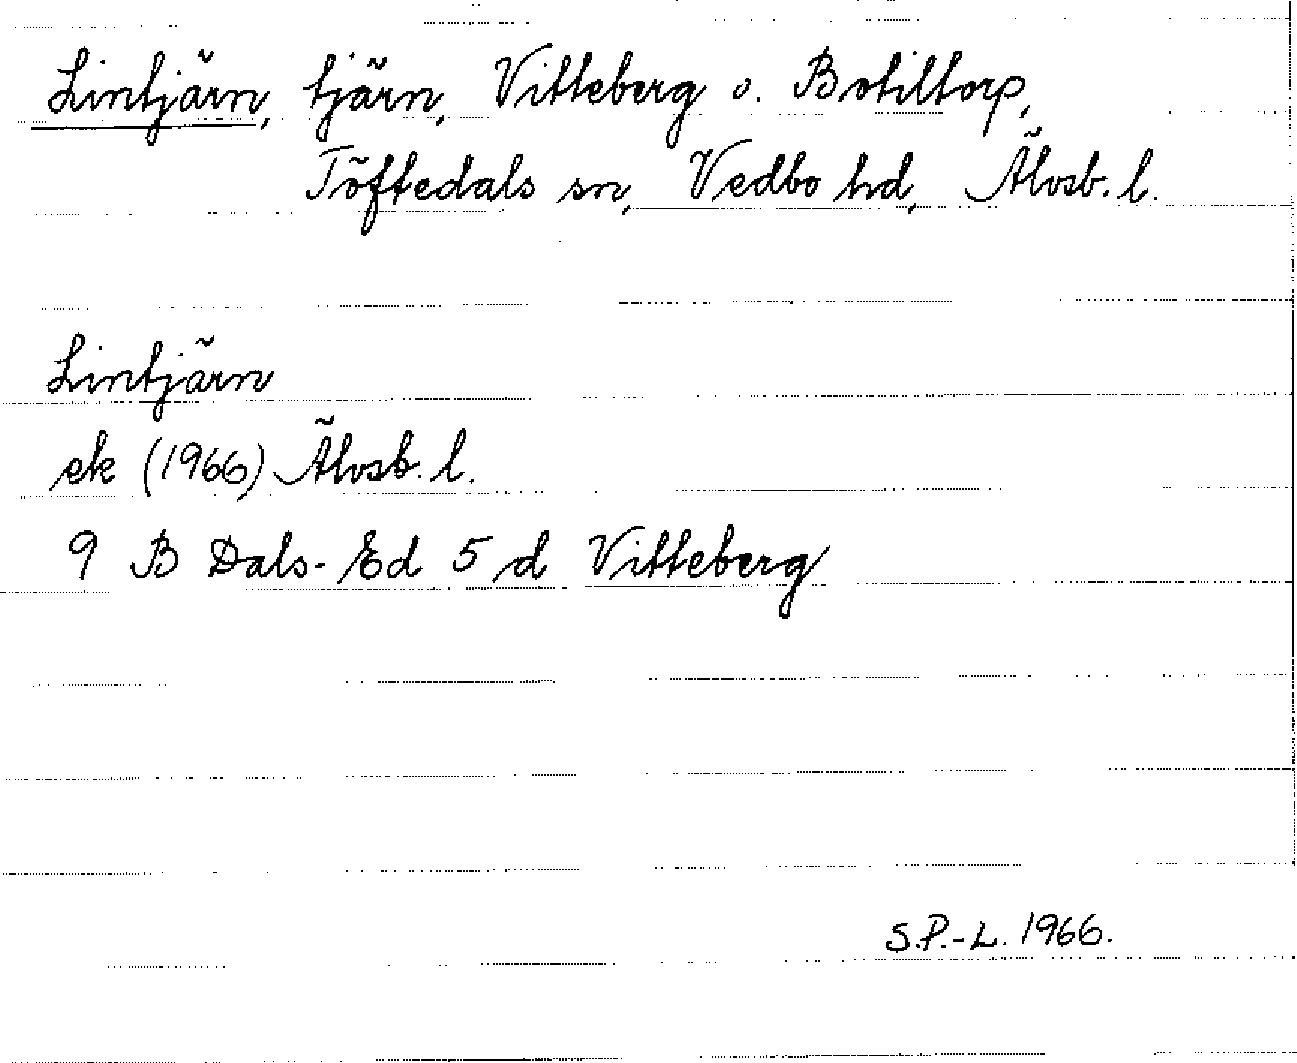 Lintjärn, tjärn, Vitteberg o. Botiltorp,
Töftedals sn, Vedbo hd, Älvsb. l.
Lintjärn
ek (1966) Älvsb. l.
9 B Dals-Ed 5 d Vitteberg
S.P.-L. 1966.